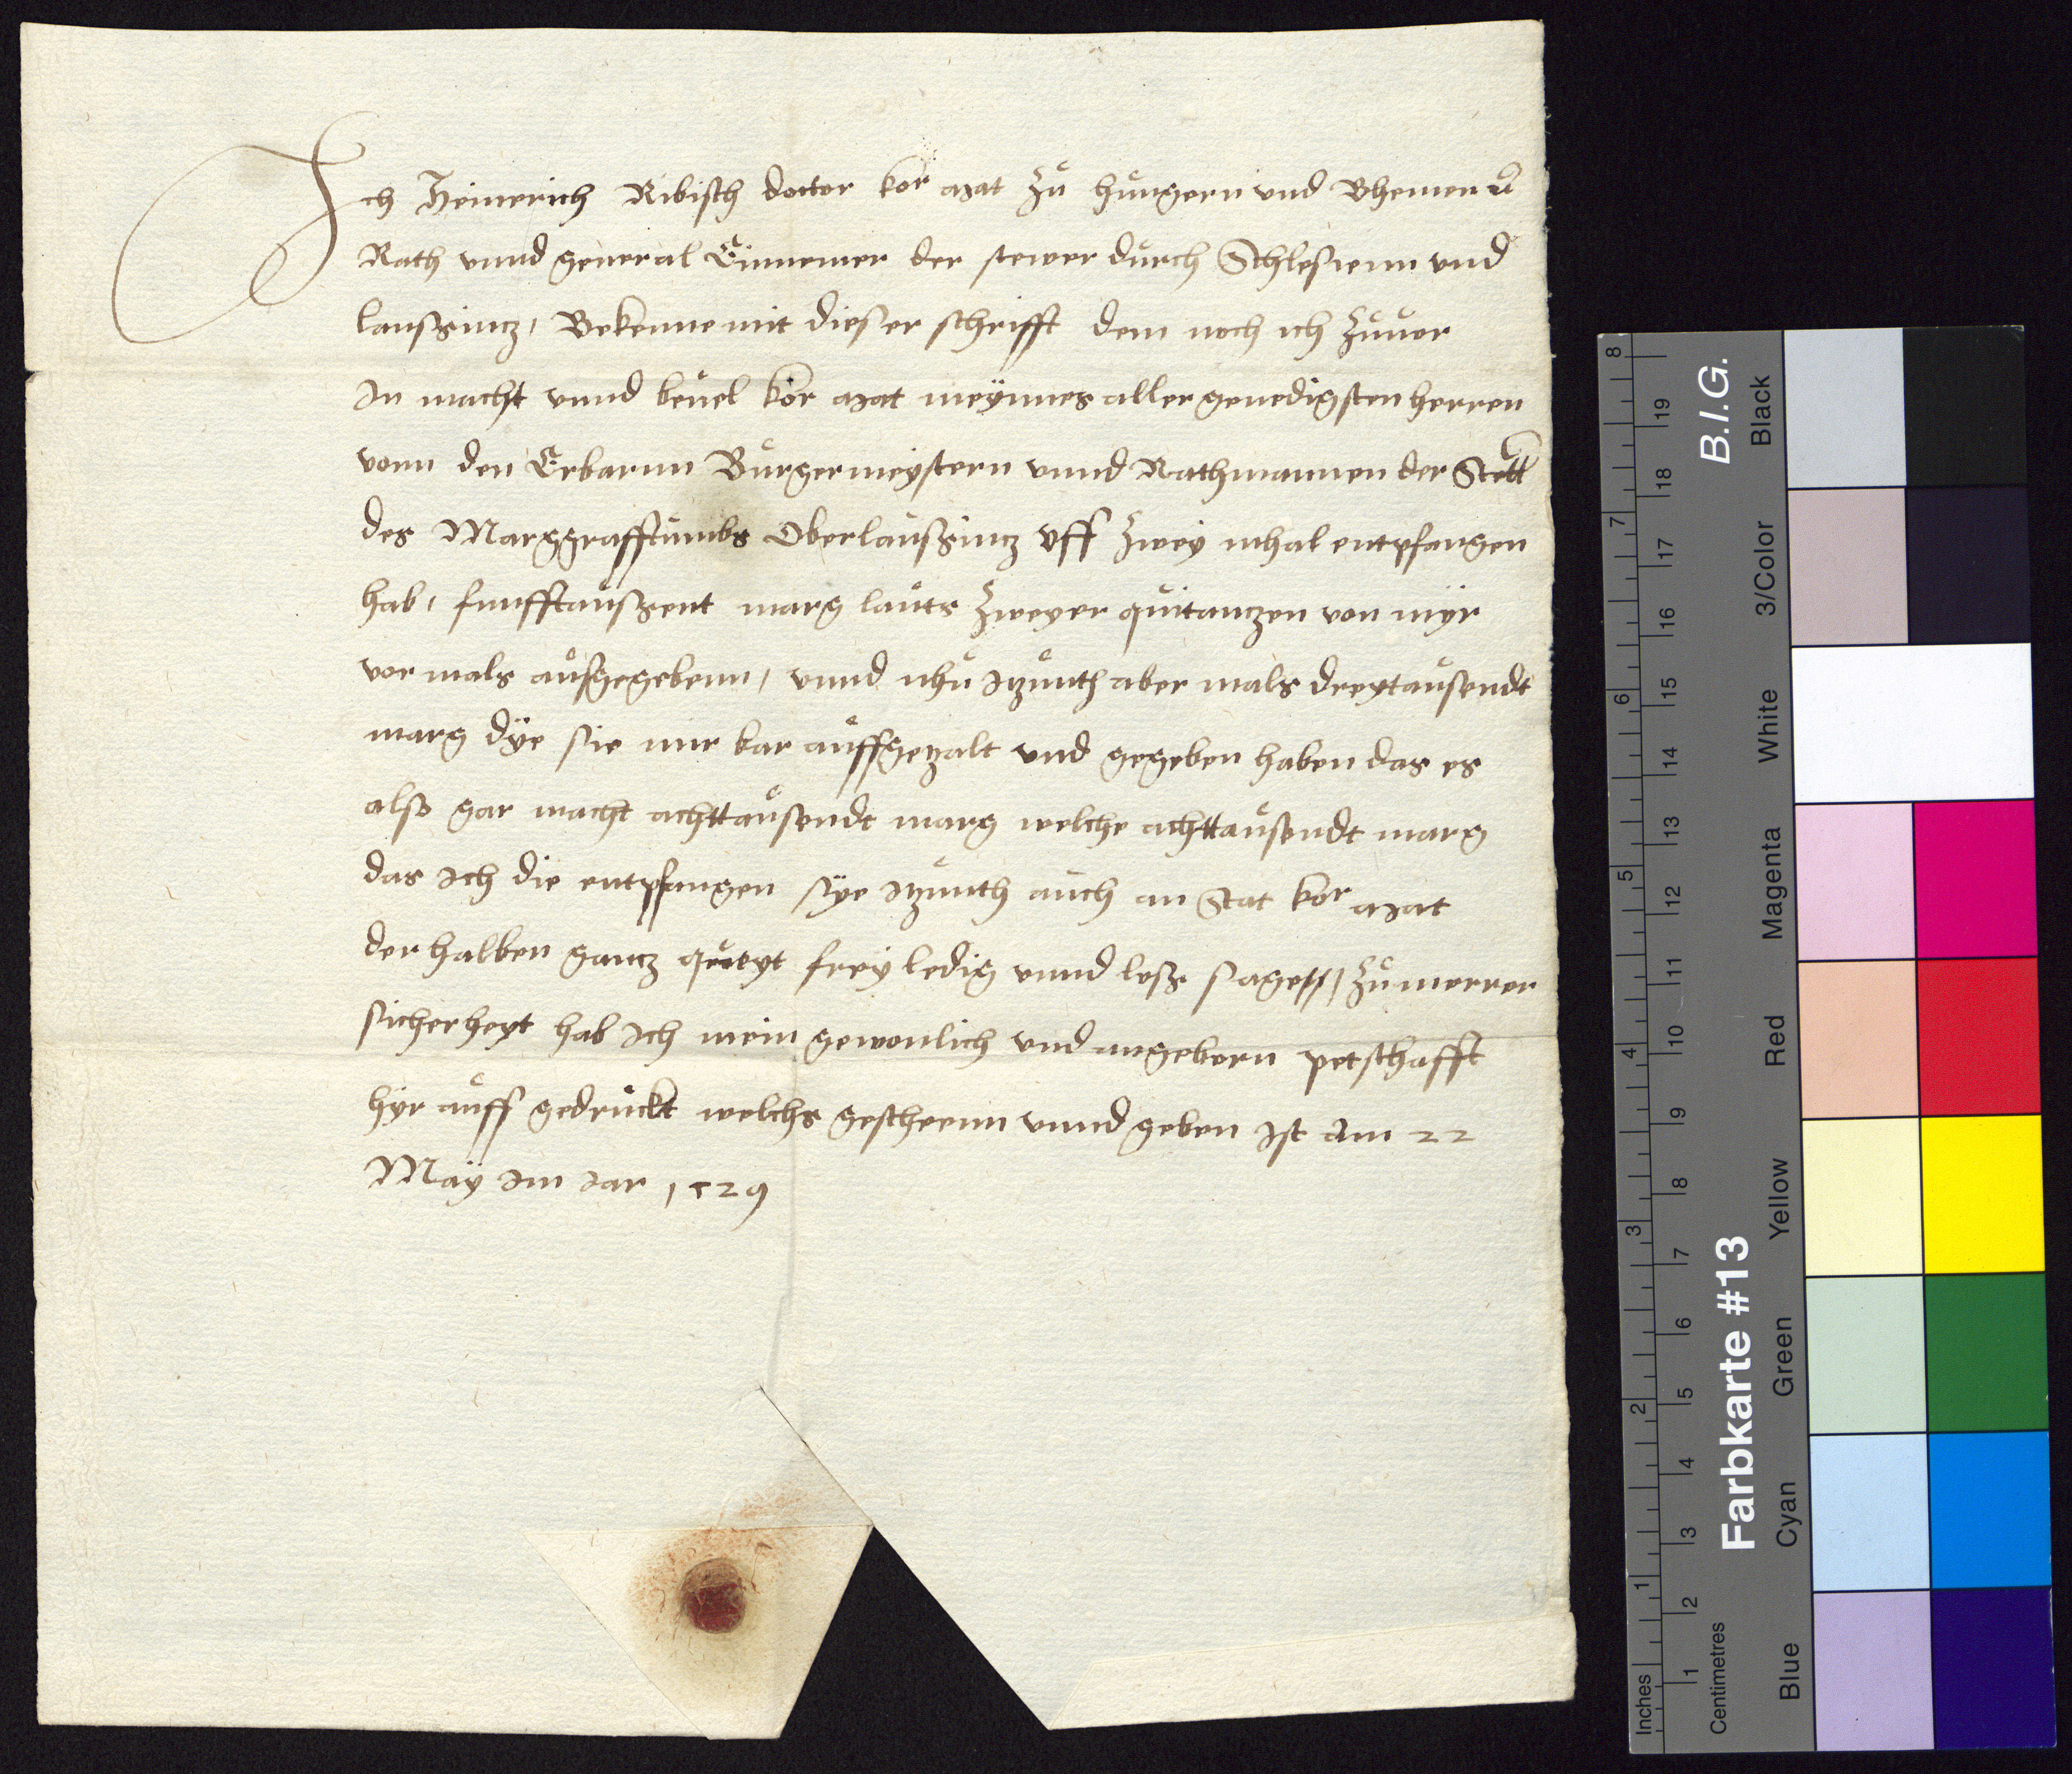 Ich Heinerich Ribisch doctor kor Mat zů hůngern und Bhemen ꝛc
Rath vnnd general Einnemer der stewer důrch Schlesienn vnd
laussintz, Bekenne mit dieser schrifft dem noch ich zůuor
In macht vnnd beuel kor Mat meÿnnes aller genedigsten herren
vonn den Erbarnn Bůrgermeystern vnnd Rathmannen der Stett
des Marggrafftůmbs Oberlaůssintz vff zweÿ mhal entpfangen
hab, funfftaůssent marg laůts zweyer quitantzen von mÿr
vor mals aůsgegebenn, vnnd nhů Itzůnth aber mals dreytaůsendt
marg dÿe sie mir bar aůffgetzalt vnd gegeben haben das es
also gar macht achttaůsendt marg welche achttaůsendt marg
das Ich die entpfangen sÿe Itzůnth aůch an Stat kor Mat
der halben gantz qweyt freÿ ledig vnnd loss sagen, zů merrer
sicherheyt hab Ich mein gewonlich vnd angeborn petschafft
hÿr aůff gedrůckt welchs gescheenn vnnd geben Ist Am 22
Maÿ Im Iar 1529
Inches
Centimetres
1 2 3 4 5 6 7 8
1 2 3 4 5 6 7 8 9 10 11 12 13 14 15 16 17 18 19
Farbkarte #13
B.I.G.
Blue Cyan Green Yellow Red Magenta White 3/Color Black